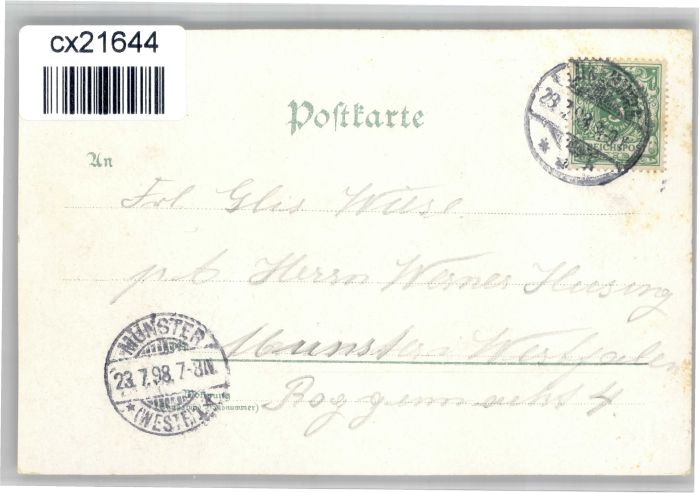 cx21644
Postkarte
REICHSPOST
An
Frl Elis Wiese
Herrn Werner Huesing
MÜNSTER
23.7.98.7-8N.
(WESTF.)
Münster Westfalen
Roggenmarkt 4.
Wohnung